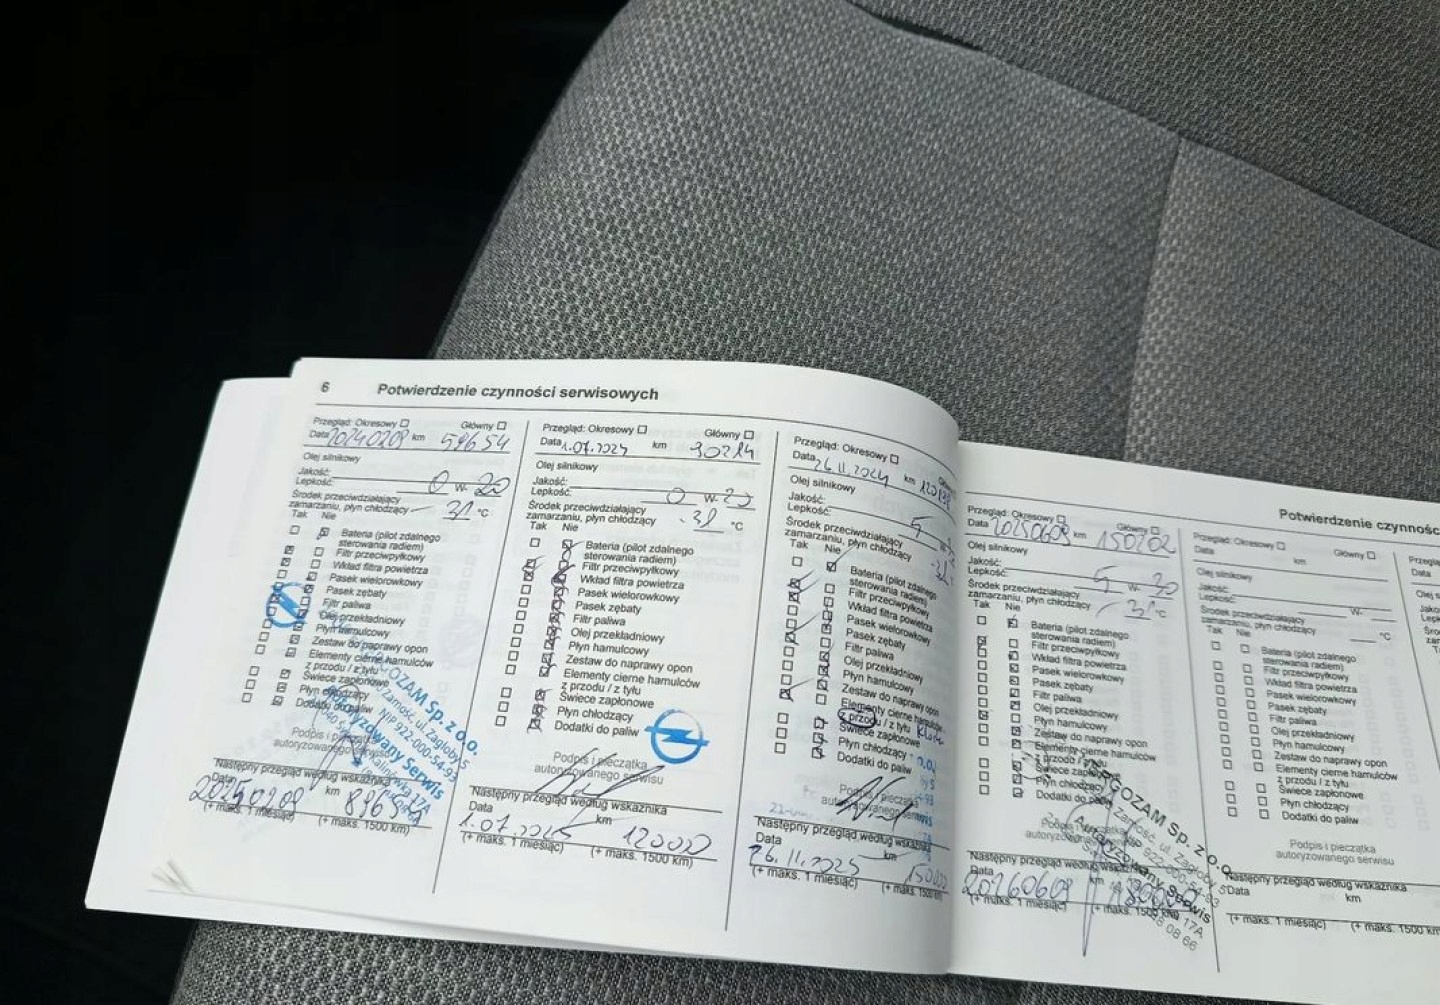 6 Potwierdzenie czynności serwisowych
Przegląd: Okresowy Główny
Data 20240209 km 59654
Olej silnikowy
Jakość:
Lepkość: 0 W- 20
Środek przeciwdziałający
zamarzaniu, płyn chłodzący - 31 °C
Tak Nie
Bateria (pilot zdalnego
sterowania radiem)
Filtr przeciwpyłkowy
Wkład filtra powietrza
Pasek wielorowkowy
Pasek zębaty
Filtr paliwa
Olej przekładniowy
Płyn hamulcowy
Zestaw do naprawy opon
Elementy cierne hamulców
z przodu / z tyłu
Świece zapłonowe
Płyn chłodzący
Dodatki do paliw
Podpis i
autoryzowanego
Następny przegląd według wskaźnika
Data 20250209 km
(+ maks. 1 miesiąc) (+ maks. 1500 km)
Przegląd: Okresowy Główny
Data 1.07.2024 km 90214
Olej silnikowy
Jakość:
Lepkość: 0 W- 20
Środek przeciwdziałający
zamarzaniu, płyn chłodzący -31 °C
Tak Nie
Bateria (pilot zdalnego
sterowania radiem)
Filtr przeciwpyłkowy
Wkład filtra powietrza
Pasek wielorowkowy
Pasek zębaty
Filtr paliwa
Olej przekładniowy
Płyn hamulcowy
Zestaw do naprawy opon
Elementy cierne hamulców
z przodu / z tyłu
Świece zapłonowe
Płyn chłodzący
Dodatki do paliw
Podpis i pieczątka
autoryzowanego serwisu
Następny przegląd według wskaźnika
Data km
1.07.2025 120000
(+ maks. 1 miesiąc) (+ maks. 1500 km)
Przegląd: Okresowy
Data 26.11.2024 km
Olej silnikowy
Jakość:
Lepkość: 5 W
Środek przeciwdziałający
zamarzaniu, płyn chłodzący
Tak Nie
Bateria (pilot zdalnego
sterowania radiem)
Filtr przeciwpyłkowy
Wkład filtra powietrza
Pasek wielorowkowy
Pasek zębaty
Filtr paliwa
Olej przekładniowy
Płyn hamulcowy
Zestaw do naprawy opon
Elementy cierne hamulców
z przodu / z tyłu
Świece zapłonowe
Płyn chłodzący
Dodatki do paliw
Podpis i pieczątka
Następny przegląd według wskaźnika
Data km
26.11.2025 150000
(+ maks. 1 miesiąc) (+ maks. 1500 km)
Przegląd: Okresowy Główny
Data 20250609 km 150202
Olej silnikowy
Jakość:
Lepkość: 5 W- 30
Środek przeciwdziałający
zamarzaniu, płyn chłodzący - 31 °C
Tak Nie
Bateria (pilot zdalnego
sterowania radiem)
Filtr przeciwpyłkowy
Wkład filtra powietrza
Pasek wielorowkowy
Pasek zębaty
Filtr paliwa
Olej przekładniowy
Płyn hamulcowy
Zestaw do naprawy opon
Elementy cierne hamulców
z przodu / z tyłu
Świece zapłonowe
Płyn chłodzący
Dodatki do paliw
Następny przegląd według wskaźnika
Data 20260609 km
(+ maks. 1 miesiąc) (+ maks. 1500 km)
Sp. z o.o.
Zamość, ul. Zagłoby 5
Autoryzowany Serwis
Potwierdzenie czynności
Przegląd: Okresowy Główny
Data km
Olej silnikowy
Jakość:
Lepkość: W-
Środek przeciwdziałający
zamarzaniu, płyn chłodzący °C
Tak Nie
Bateria (pilot zdalnego
sterowania radiem)
Filtr przeciwpyłkowy
Wkład filtra powietrza
Pasek wielorowkowy
Pasek zębaty
Filtr paliwa
Olej przekładniowy
Płyn hamulcowy
Zestaw do naprawy opon
Elementy cierne hamulców
z przodu / z tyłu
Świece zapłonowe
Płyn chłodzący
Dodatki do paliw
Podpis i pieczątka
autoryzowanego serwisu
Następny przegląd według wskaźnika
Data km
(+ maks. 1 miesiąc) (+ maks. 1500 km)